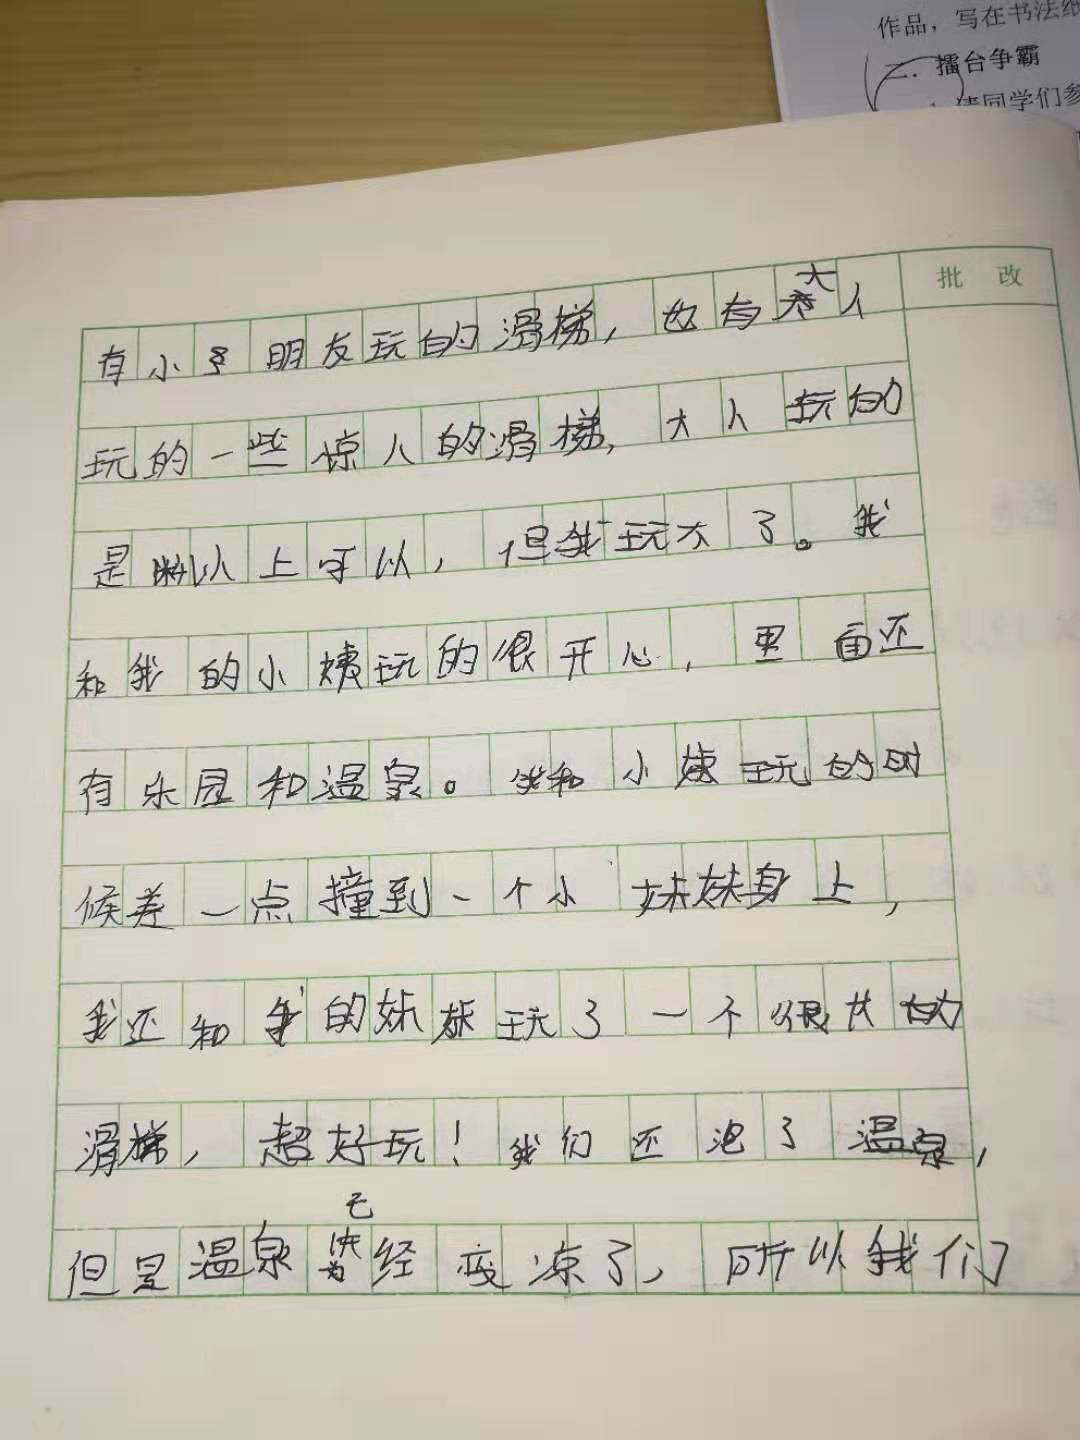 作品，写在书法纸
二．擂台争霸
请同学们参
批 改
有小朋友玩的滑梯，也有大人
玩的一些惊人的滑梯，大人玩的
是米以上可以，但我玩不了。我
和我的小姨玩的很开心，里面还
有乐园和温泉。我和小姨玩的时
候差一点撞到一个小妹妹身上，
我还和我的妹妹玩了一个很大的
滑梯，超好玩！我们还泡了温泉，
但是温泉已经变凉了，所以我们